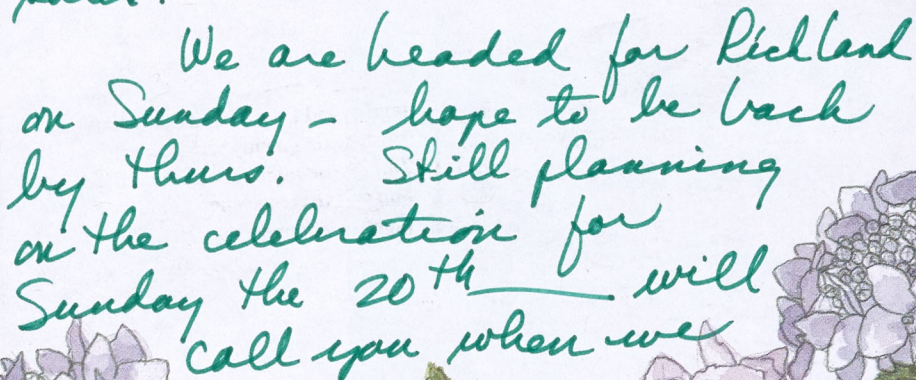 We are headed for Richland
on Sunday – hope to be back
by thurs. Still planning
on the celebration for
Sunday the 20th ____ will
call you when we